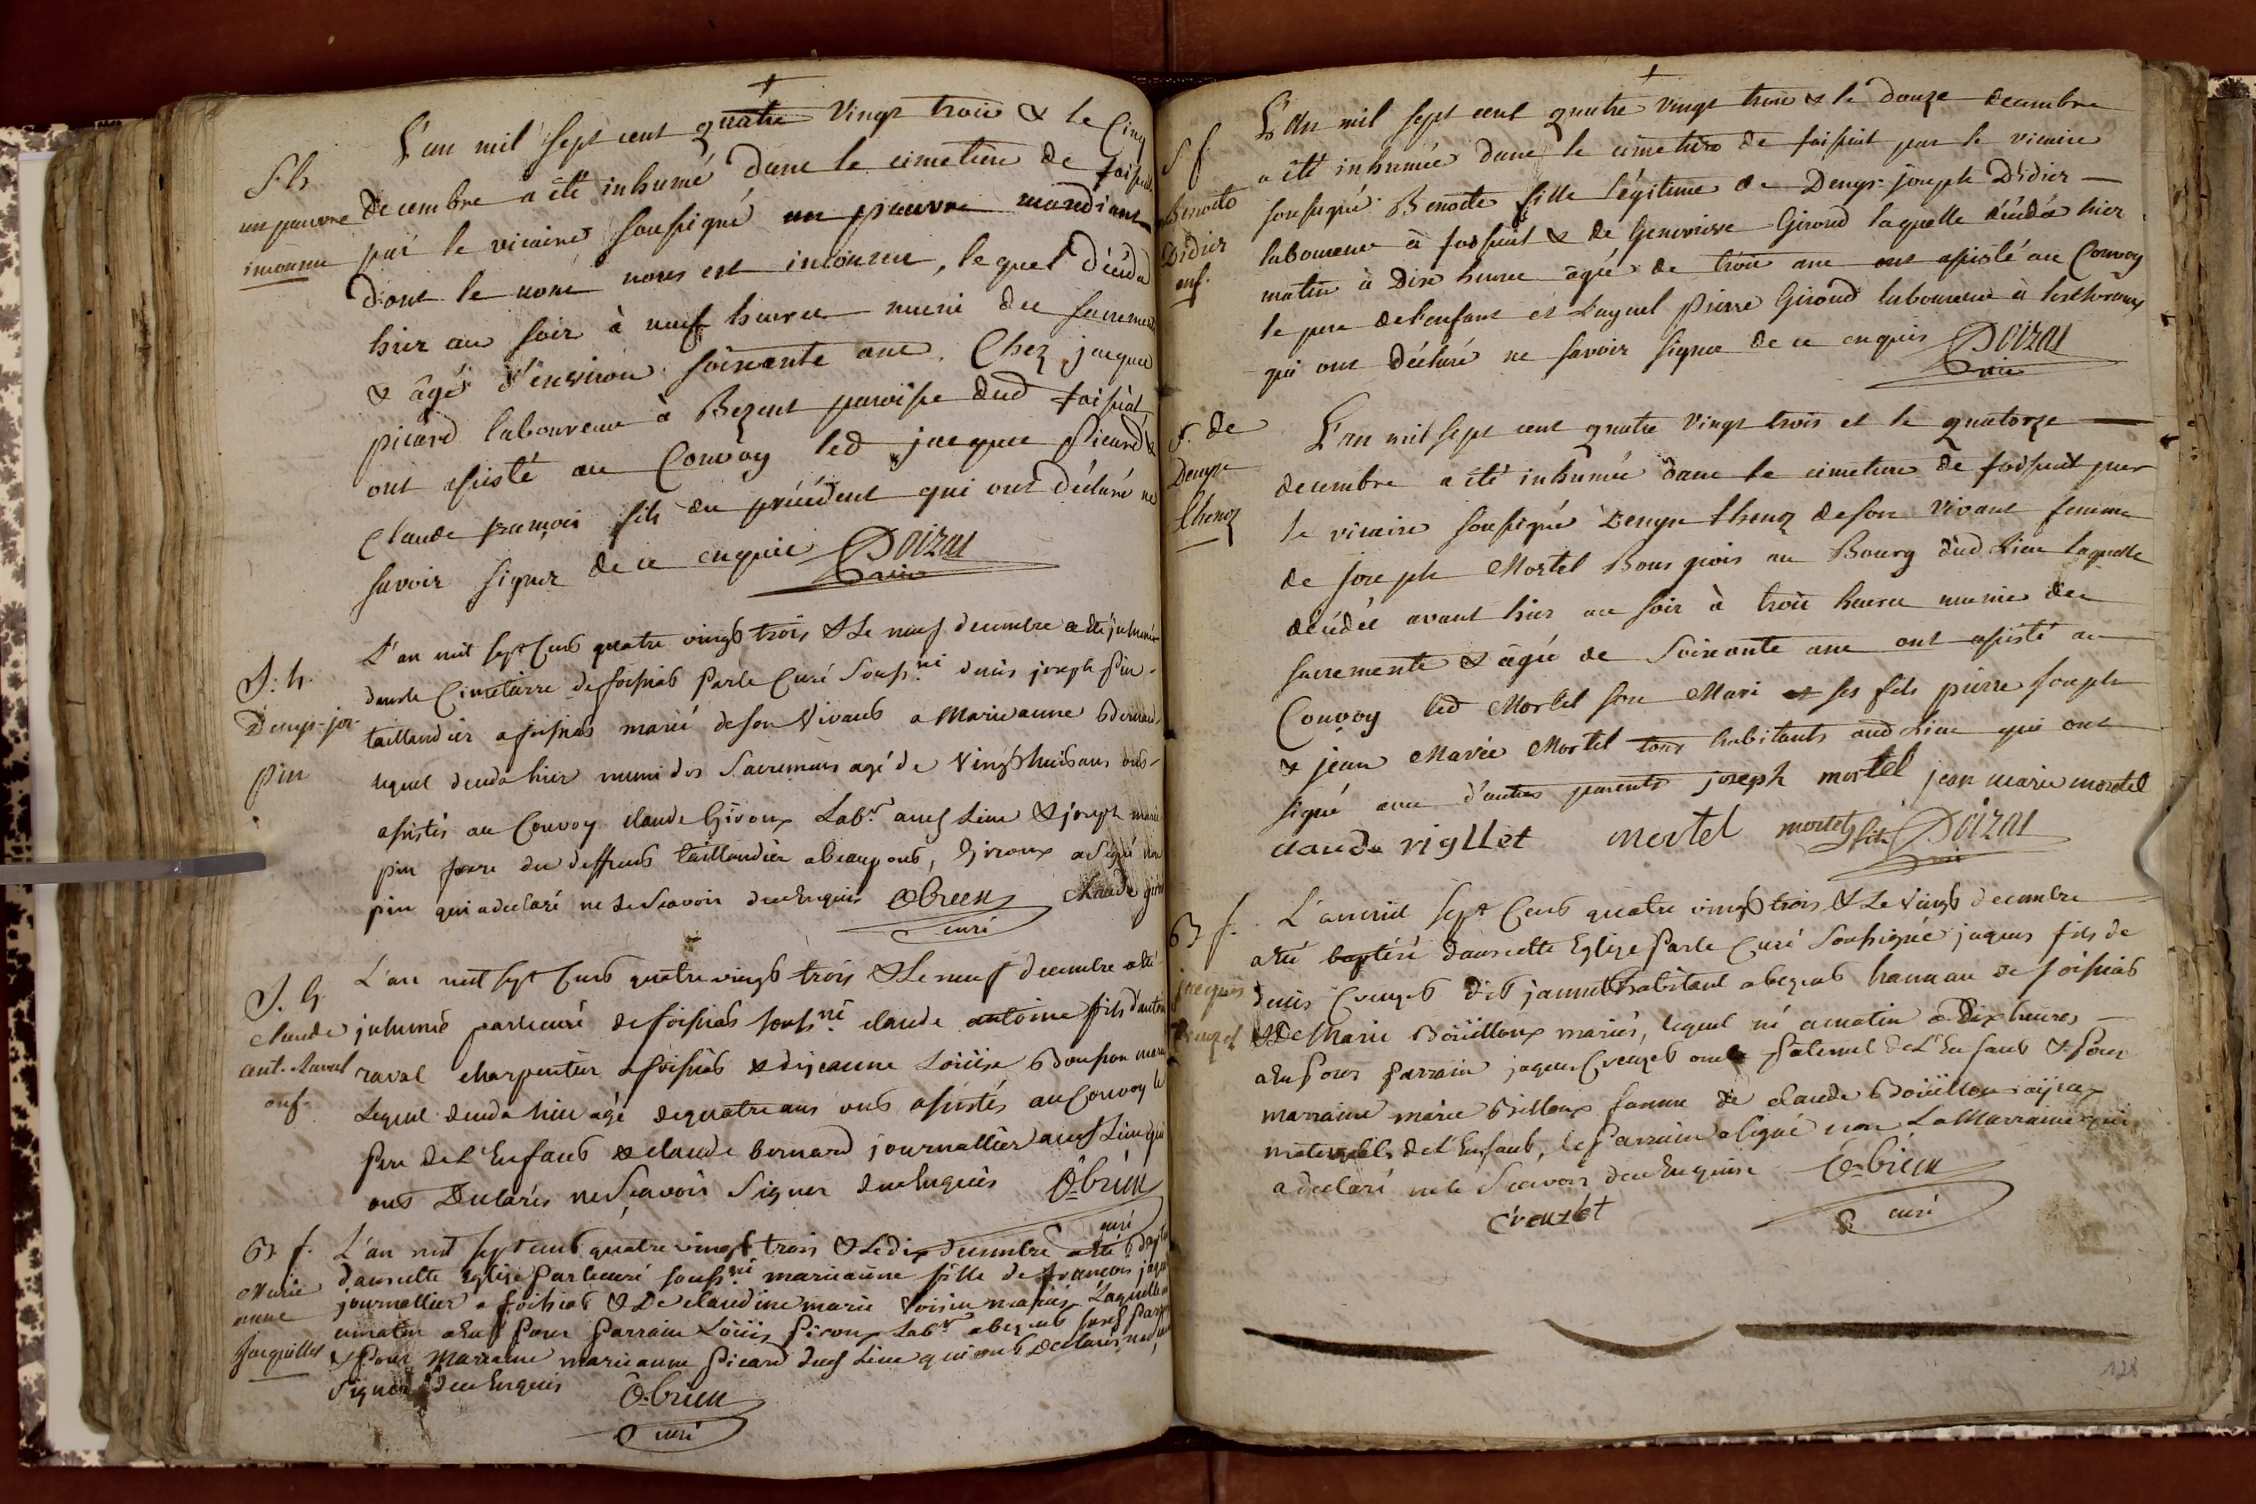 L'an mil sept cent quatre vingt trois & le Cinq
S h.
un pauvre
inconnu
decembre a été inhumé dans le cimetiere de foissiat
par le vicaire soussigné un pauvre mandiant
dont le nom nous est inconnu, lequel décéda
hier au soir à neuf heures muni des sacrements
& âgé d'environ soixante ans. Chez jacques
picard laboureur à Bezent paroisse dud foissiat
ont assisté au Convoy led jacques Picard &
Claude françois fils du précédent qui ont déclaré ne
savoir signer de ce enquis Doizat
vic
S: h.
Denys-jos
pin
L'an mil sept Cens quatre vingt trois & Le neuf decembre a été inhumé
dans le Cimetierre de foissiat par le Curé Souss.né denis joseph Pin
taillandier a foissiat marié de son Vivant a Marieanne Bernard
lequel deceda hier muni des Sacremens agé de Vingt huit ans ont
assistés au Convoy claude Giroux Lab.r aud Lieu & joseph marie
pin frere du deffunt taillandier a beaupont, Giroux a Signé non
pin qui a declaré ne le Scavoir de ce Enquis Obrien claude giroux
curé
S. h
claude
ant. Raval
enf.
L'an mil sept Cens quatre vingt trois & Le neuf decembre a été
inhumé par le curé de foissiat souss.né claude antoine fils d'antoine
raval charpentier a foissiat & de jeanne Loüise Bonpon mariés
Lequel deceda hier agé de quatre ans ont assistés au Convoy le
Pere de L'Enfant & claude bernard journallier aud Lieu qui
ont Declarés ne Scavoir Signer de ce Enquis O-brien
curé
B f.
Marie
anne
Jacquillet
L'an mil sept cens quatre vingt trois & Le dix decembre a été bapt
dans cette Eglise Par le curé souss.né marieanne fille de françois
journallier a foissiat & De claudine marie Voisin mariés Laquelle
ce matin a eu Pour Parrain Loüis Piroux Lab.r a bezent
& Pour Marraine marieanne Picard dud Lieu qui ont Declarés ne
Signer de ce Enquis O-brien
curé
S f
Benoite
Didier
enf.
L'an mil sept cent quatre vingt trois & le douze decembre
a été inhumée dans le cimetiere de foissiat par le vicaire
soussigné Benoite fille légitime de Denys-joseph Didier
laboureur à foissiat & de Genevieve Giroud laquelle décéda hier
matin à Dix heures agée de trois ans ont assisté au Convoy
le pere de l'enfant et Pierre Giroud laboureur à
qui ont déclaré ne savoir signer de ce enquis Doizat
vic
S. de
Denyse
thenoz
L'an mil sept cent quatre vingt trois et le quatorze
decembre a été inhumée dans le cimetiere de foissiat par
le vicaire soussigné Denyse thenoz de son vivant femme
de joseph Mortel Bourgeois au Bourg dud Lieu laquelle
décédée avant hier au soir à trois heures munie des
sacrements & agée de Soixante ans ont assisté au
Convoy led Mortel son Mari et ses fils pierre joseph
& jean Marie Mortel tous habitants aud Lieu qui ont
signé avec d'autres parents joseph mortel jean marie mortel
claude rigLLet mortel mortel fils Doizat
vic
B f.
jacques
Creuzet
L'an mil sept Cens quatre vingt trois & Le Vingt decembre
a été baptisé dans cette Eglise Par le Curé Soussigné jaques fils de
denis Creuzet dit jannet habitant a bezent hameau de foissiat
& De Marie Boüilloux mariés, lequel né ce matin a Dix heures
a eu Pour Parrain jaques Creuzet oncle Paternel de L'Enfant & Pour
marraine marie Billoux femme de claude Boüilloux ayeux
maternels de L'Enfant, le Parrain a signé non La Marraine qui
a declaré ne le Scavoir de ce Enquise O-brien
creuzet
curé
128